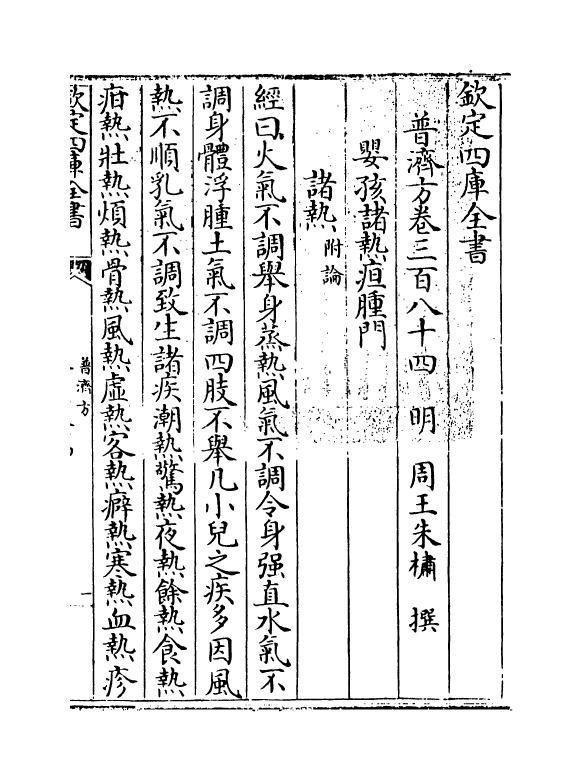 欽定四庫全書
普濟方卷三百八十四 明 周王朱橚 撰
嬰孩諸熱疸腫門
諸熱附論
經曰火氣不調舉身蒸熱風氣不調令身强直水氣不
調身體浮腫土氣不調四肢不舉凡小兒之疾多因風
熱不順乳氣不調致生諸疾潮熱驚熱夜熱餘熱食熱
疳熱壯熱煩熱骨熱風熱虛熱客熱癖熱寒熱血熱疹
欽定四庫全書
普濟方